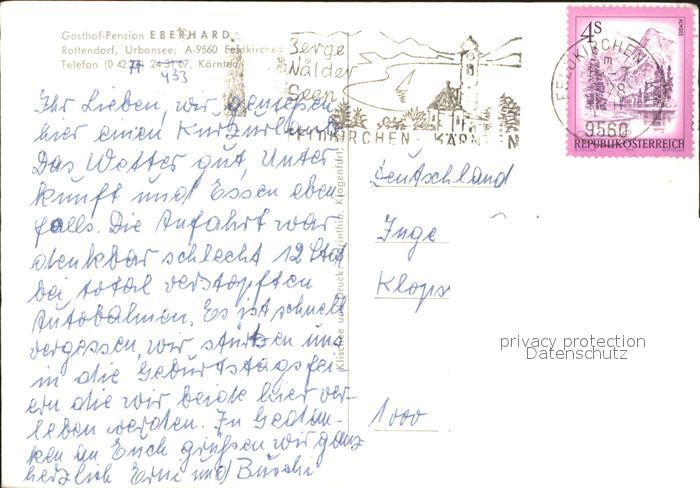 Gasthof-Pension EBERHARD
Rottendorf, Urbansee, A-9560 Feldkirchen
Telefon (0 42 77 24 31 67, Kärnten
433
Berge
Wälder
Seen
FELDKIRCHEN KÄRNTEN
4S
ALMSEE
FELDKIRCHEN
9560
REPUBLIK ÖSTERREICH
Ihr Lieben, wir genießen
hier einen Kurzurlaub
Das Wetter gut, Unter
kunft und Essen eben
falls. Die Anfahrt war
denkbar schlecht 12 Std
bei total verstopften
Autobahnen. Es ist schnell
vergessen, wir stürzen uns
in die Geburtstagsfei-
ern die wir beide hier ver-
leben werden. In Gedan-
ken an Euch grüßen wir ganz
herzlich Erni und Buschi
Klischee und Druck Carinthia, Klagenfurt
Deutschland
Inge
Klops
1000
privacy protection
Datenschutz